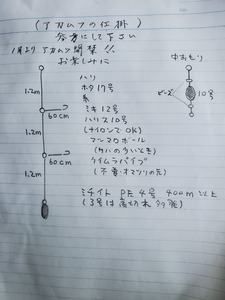 (アカムツの仕掛)
参考にして下さい
1月よりアカムツ開禁!!
お楽しみに
中おもり
ハリ
ホタ17号
糸
ミキ12号
ハリス10号
(ナイロンでOK)
マシュマロボール
(サバの多いとき)
ケイムラパイプ
(不要・オマツリの元)
ビーズ
10号
1.2m
60cm
1.2m
60cm
1.2m
ミチイトPE4号400m以上
(3号は高切れ多発)